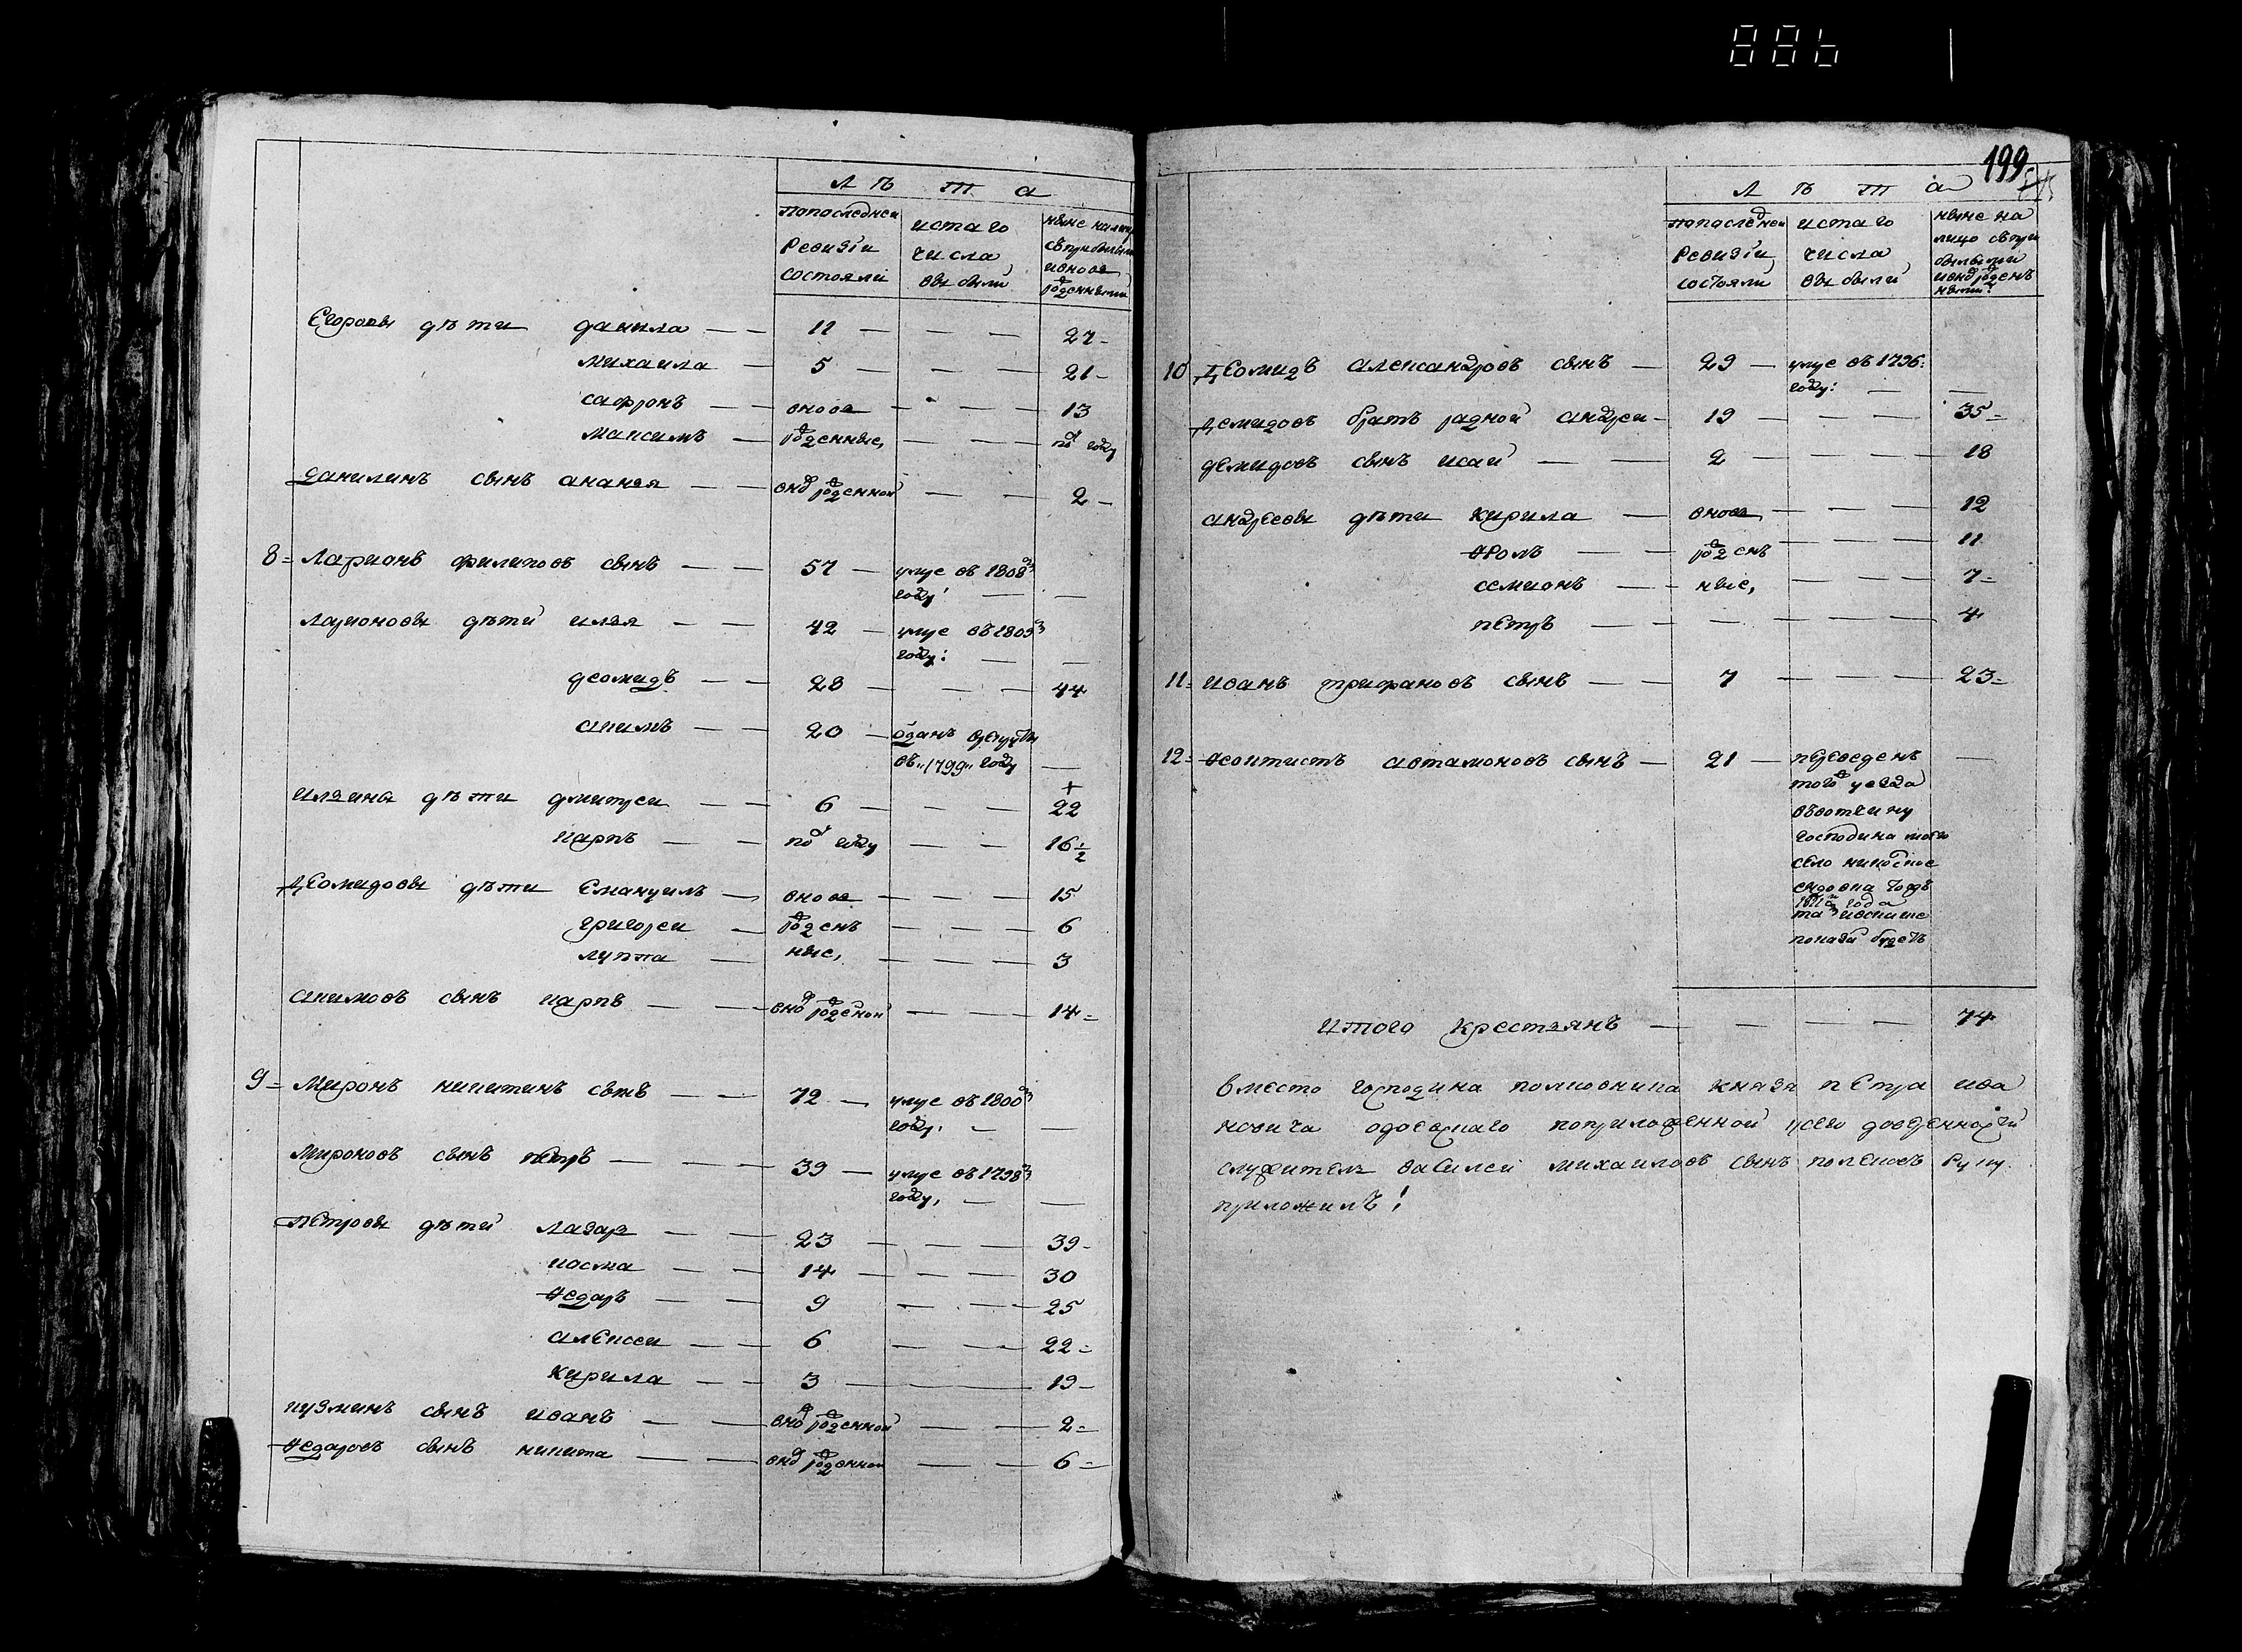 886
Л ѣ т а
попоследнеи ревизїи состояли
истаго числа выбыли
ныне налицо съприбылыми ивнове рожденными
Егоровы дѣти данила — — 11 — — — 27
михаила — 5 — — — 21
сафронъ — — вновь — — — 13
максимъ — рожденные, — — — полъ году
данилинъ сынъ ананья — — внов рожденной — — 2
8 = Ларионъ филиповъ сынъ — — 57 — умре въ 1808м
году: — —
Ларионовы дѣти илья — — 42 — умре въ 1809м
году: — —
деомидъ — — 28 — — — 44
акимъ — — 20 — отданъ врекруты
въ „1799„ году —
ильина дѣти дмитреи — — 6 — — — 22
карпъ — — полъ году — — 16 1/2
деомидовы дѣти Емануилъ — вновь — — — 15
григореи — рожден — — — 6
луппа — ные, — — — 3
акимовъ сынъ карпъ — — внов рожденой — — — 14 =
9 = Миронъ никитинъ сынъ — — 72 — умре въ 1800м
году. — —
Мироновъ сынъ петръ — — — 39 — умре въ 1798м
году, — —
петровы дѣти лазарь — — 23 — — — 39
косма — — 14 — — — 30
ѳедаръ — — 9 — — — 25
алексеи — — 6 — — 22 =
кирила — — 3 — — 19
кузминъ сынъ иванъ — — внов рожденной — — 2 =
ѳедаровъ сынъ никита — — внов рожденной — — 6 =
199
Л ѣ т а
попоследнеи ревизїи состояли
истаго числа выбыли
ныне на лицо съпри былыми ивнов рожденъ ными:
10 деомидъ александровъ сынъ — 29 — умре въ 1796:
году: — —
демидовъ братъ радной андреи — 19 — — — 35 =
демидовъ сынъ исаи — — 2 — — — 18
андреевы дѣти кирила — вновь — — — 12
ѳролъ — — рожденъ — — — 11
семионъ — — ные, — — — 7 =
петръ — — — — — — 4
11 = иванъ трифановъ сынъ — — 7 — — — 23 =
12 = ѳеоктистъ автамоновъ сынъ — 21 — переведенъ —
тогожъ уезда
въвотчину
господина моего
село никольское
1811го года
показанъ будетъ
итого крестьянъ — — — — 74
вместо господина полковника князя петра ива
новича одоевскаго поприложенной усего доверенности
служитель василеи михаиловъ сынъ полековъ руку
приложилъ!